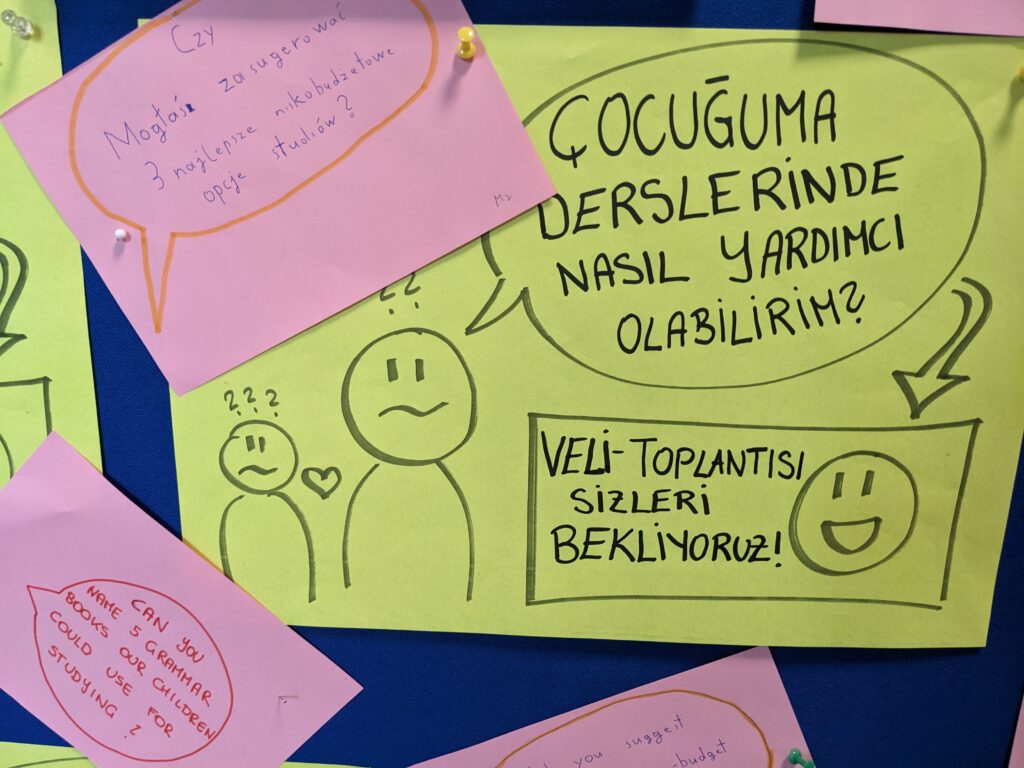 Czy
Mogłaś zasugerować
3 najlepsze niskobudżetowe
opcje studiów?
ÇOCUĞUMA
DERSLERİNDE
NASIL YARDIMCI
OLABİLİRİM?
??
???
VELİ-TOPLANTISI
SİZLERİ
BEKLİYORUZ!
CAN YOU
NAME 5 GRAMMAR
BOOKS OUR CHILDREN
COULD USE FOR
STUDYING?
you suggest
-budget